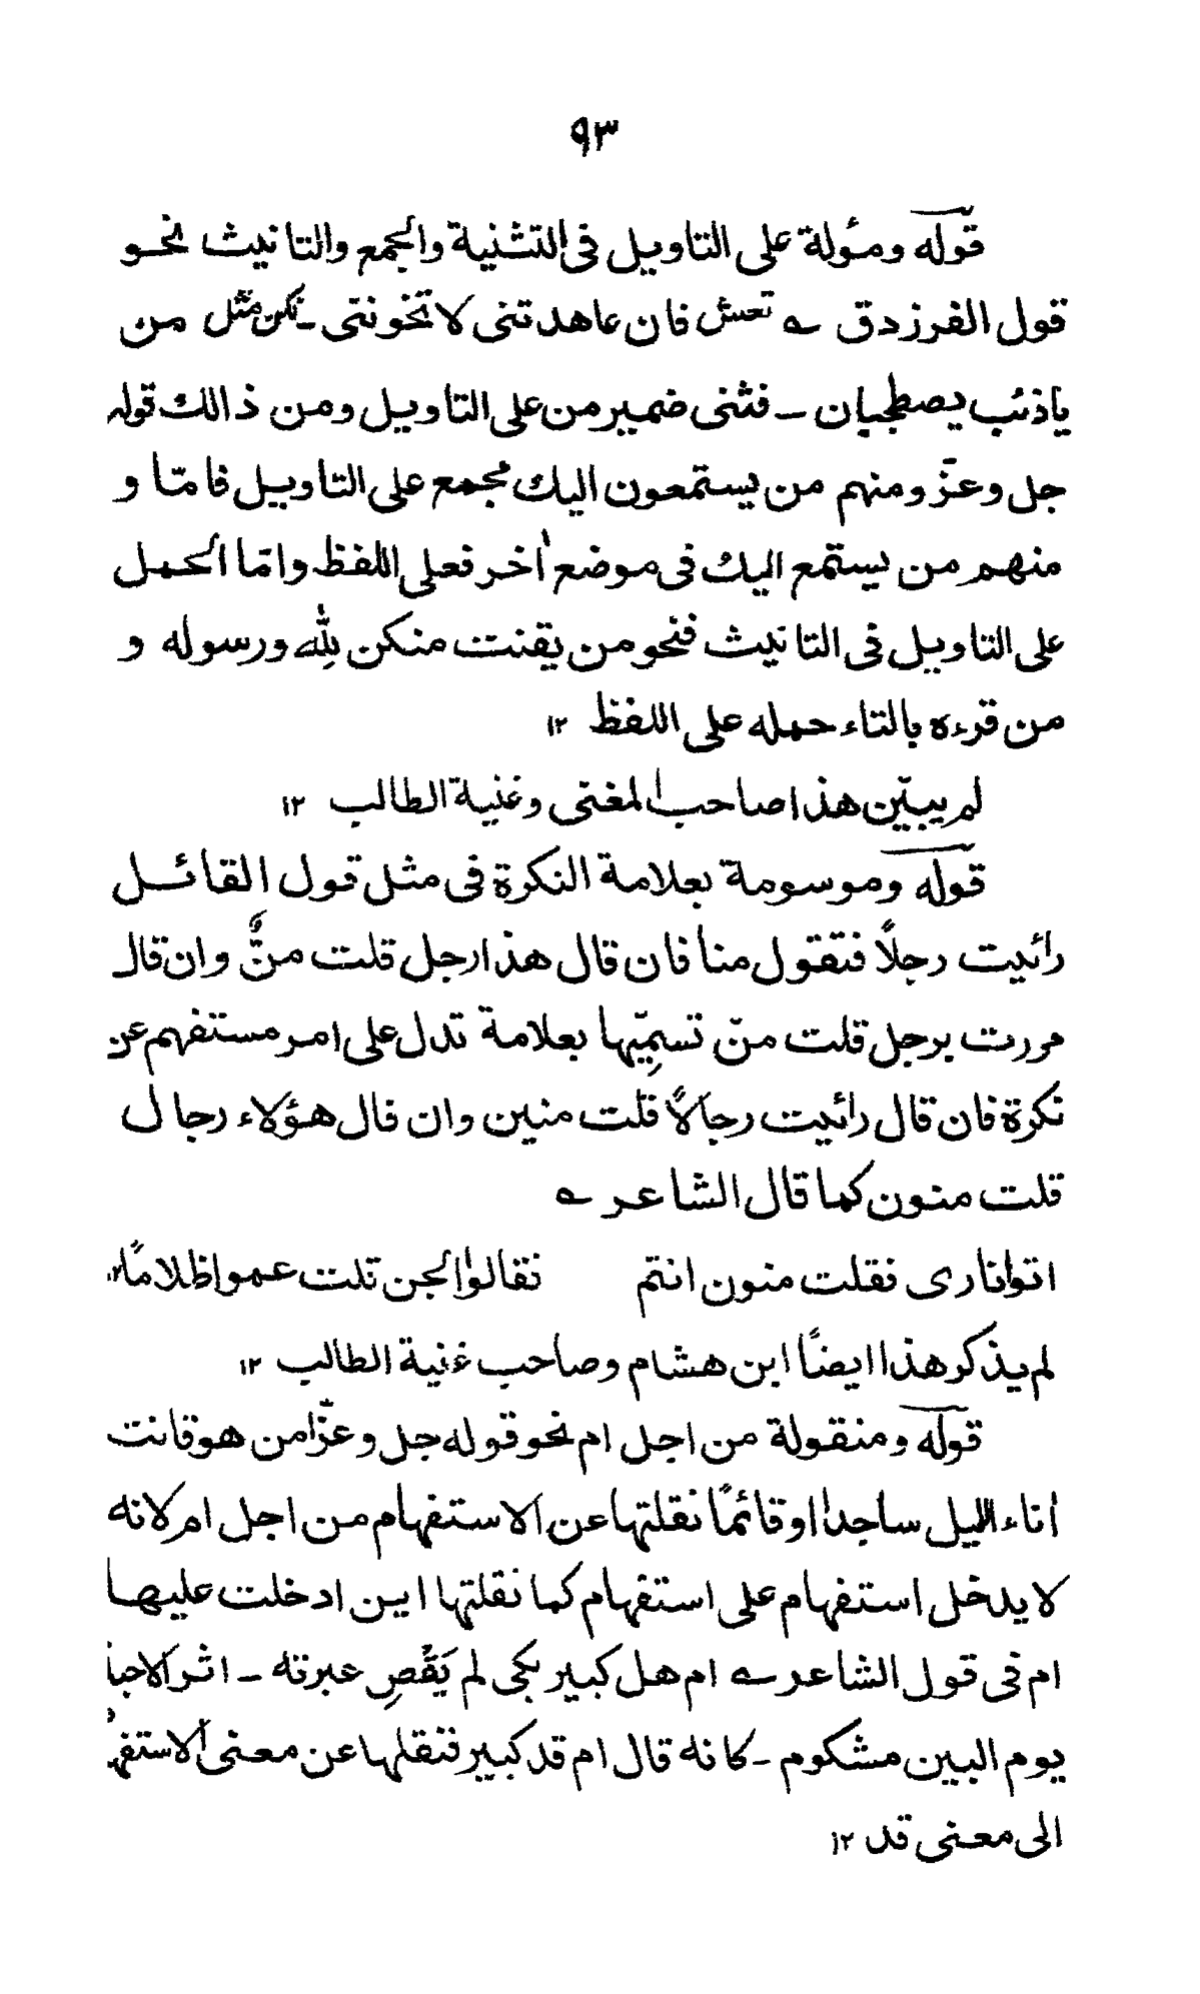 ٩٣
قوله ومؤلة على التاويل فى التثنية والجمع والتانيث نحو
قول الفرزدق ؎ تعش فان عاهدتنى لا تخوننى ـ نكن مثل من
ياذئب يصطجبان ـ فثنى ضمير من على التاويل ومن ذالك قوله
جل وعزّ ومنهم من يستمعون اليك مجمع على التاويل فامّا و
منهم من يستمع اليك فى موضع اٰخر فعلى اللفظ وامّا الحمل
على التاويل فى التانيث فنحو من يقنت منكن لله ورسوله و
من قرءه بالتاء حمله على اللفظ ١٢
لم يبيّن هذا صاحب المغنى وغنية الطالب ١٢
قوله وموسومة بعلامة النكرة فى مثل قول القائل
رائيت رجلاً فتقول منا فان قال هذا رجل قلت منٌّ وان قال
مررت برجل قلت منّ تسمِّيها بعلامة تدل على امر مستفهم عن
نكرة فان قال رائيت رجالاً قلت منين وان قال هؤلاء رجال
قلت منون كما قال الشاعر ؎
اتوا نارى فقلت منون انتم نقالوا الجن قلت عمواظلامًا ١٢
لم يذكر هذا ايضًا ابن هشام وصاحب غنية الطالب ١٢
قوله ومنقولة من اجل ام نحو قوله جل وعزّ امن هو قانت
اٰناء الليل ساجداً اوقائمًا نقلتها عن الاستفهام من اجل ام لانه
لا يدخل استفهام على استفهام كما نقلتها اين ادخلت عليها
ام فى قول الشاعر ؎ ام هل كبير بكى لم يَقْصِ عبرته ـ اثر الاحبة
يوم البين مشكوم ـ كانه قال ام قد كبير فنقلها عن معنى الاستفهام
الى معنى قد ١٢